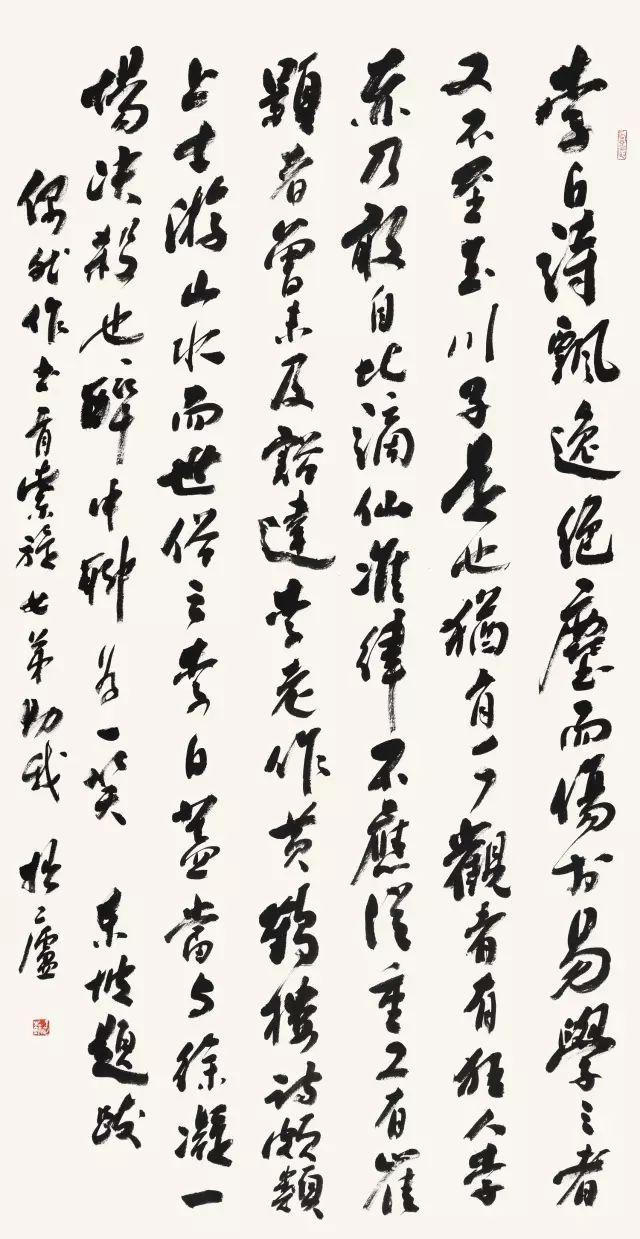 李白詩飄逸絕塵而傷於易學之者
又不至玉川子是也猶有可觀者有狂人李
赤乃敢自比謫仙准律不應從重又有崔
顥者曾未及豁達李老作黄鶴樓詩頗類
上士游山水而世俗云李白蓋當与徐凝一
場決殺也醉中聊為一笑 東坡題跋
偶然作書 七弟助我 廬